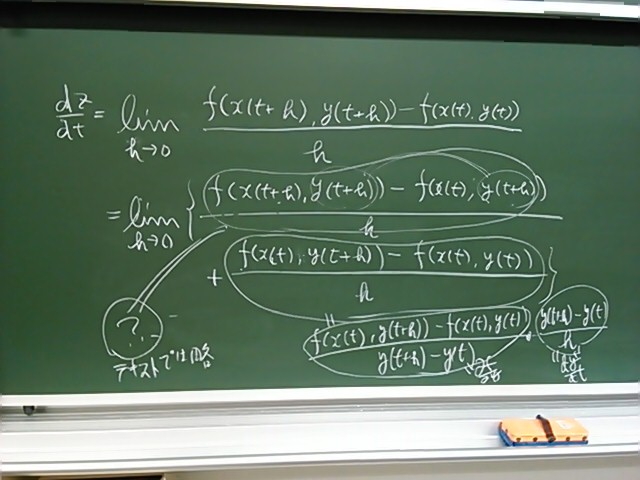 dz/dt = lim h→0 f(x(t+h), y(t+h)) − f(x(t), y(t)) / h
= lim h→0 { f(x(t+h), y(t+h)) − f(x(t), y(t+h)) / h
+ f(x(t), y(t+h)) − f(x(t), y(t)) / h }
?
テキストでは略
|| f(x(t), y(t+h)) − f(x(t), y(t)) / y(t+h) − y(t) · y(t+h) − y(t) / h
|| dy/dt